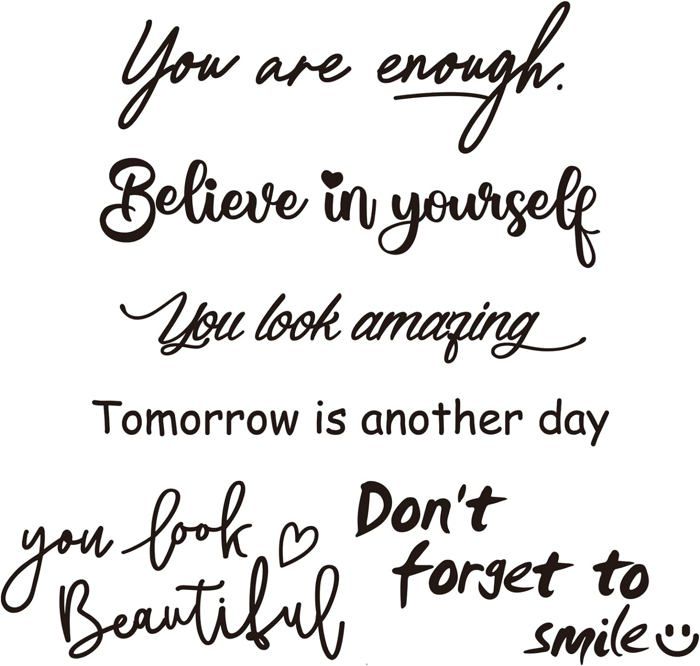 You are enough.
Believe in yourself
You look amazing
Tomorrow is another day
you look
Beautiful
Don't
forget to
smile